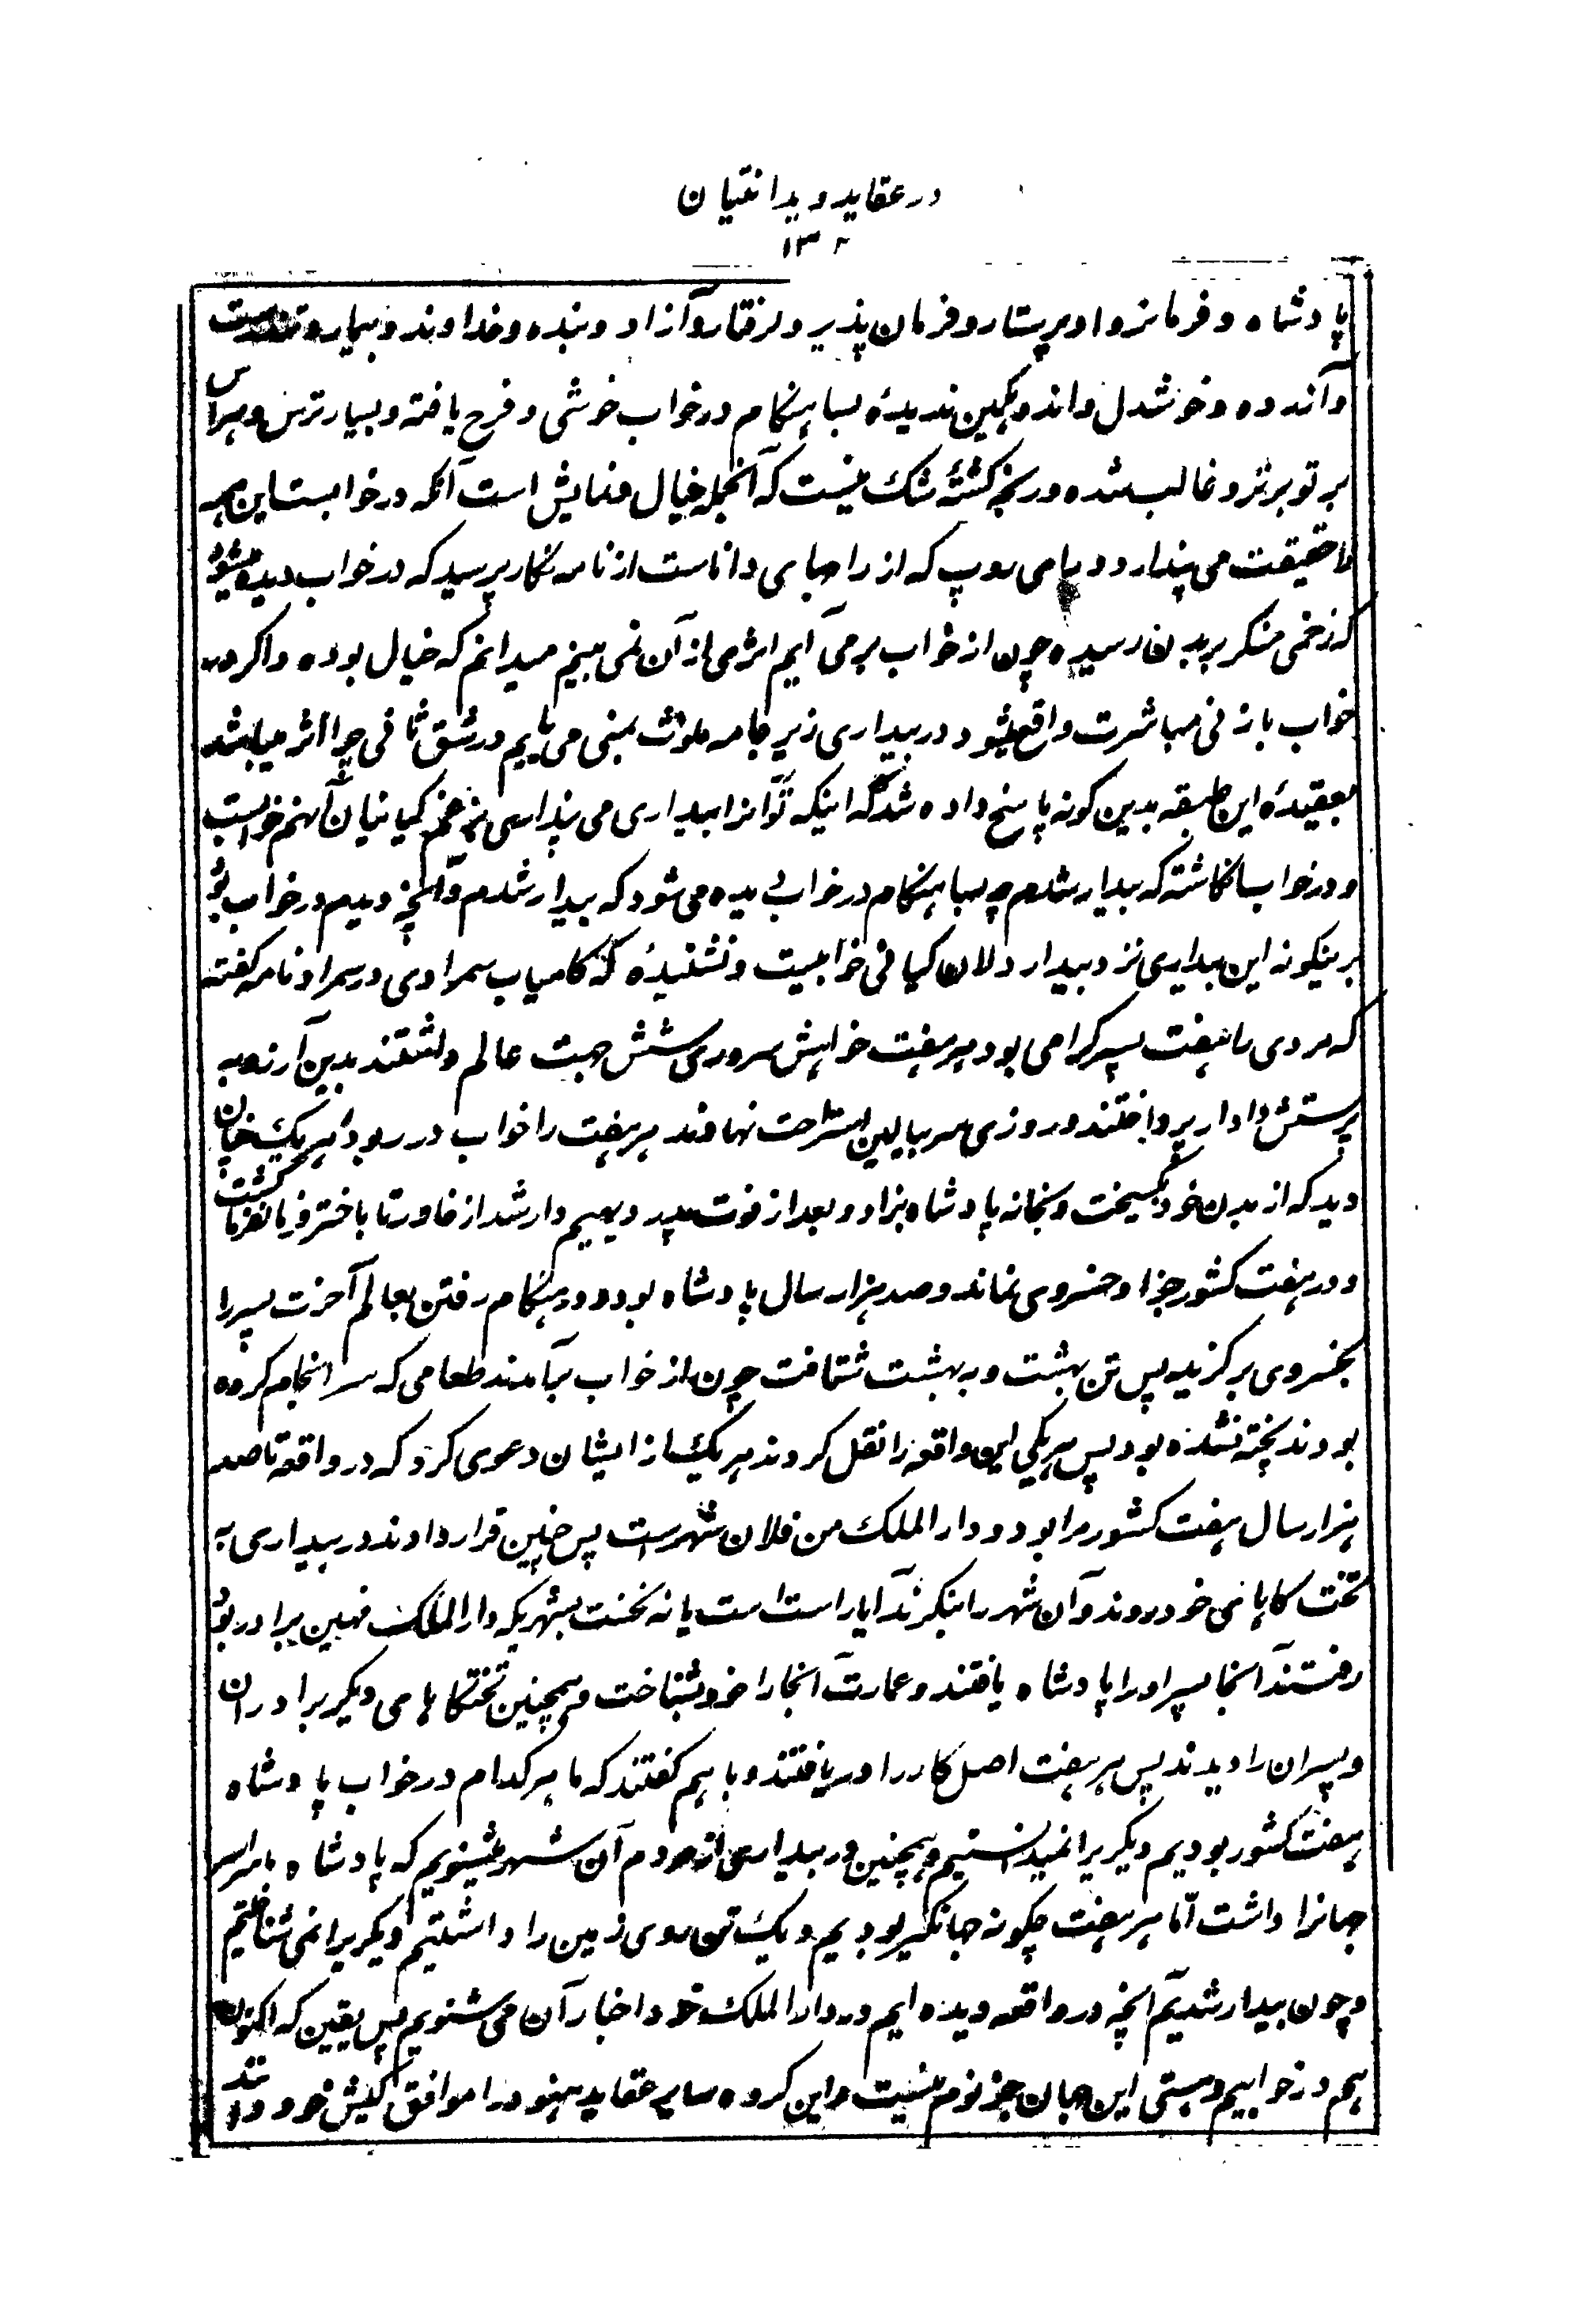 در عقاید ویدانتیان
۱۳۸
پادشاه و فرمانروا و پرستار و فرمان پذیر و گرفتار و آزاد و بنده و خداوند و بیمار و تندرست
و آزرده و خوشدل و اندوهگین ندیدهٔ بسا هنکام در خواب خوشی و فرح یافته و بسیار ترس و هراس
بر تو برتر و غالب شده و رنجه کشتهٔ شک نیست که آنجمله خیال و نمایش است آنکه در خوابست این همه
را حقیقت می پندارد و پامی روپ که از راجهای داناست از نامه نکار پرسید که در خواب دیده میشود
که زخمی منکر ببدن رسیده چون از خواب برمی آیم اثری از آن نمی بینم میدانم که خیال بوده و اکر در
خواب با زنی مباشرت واقع میشود در بیداری زیر جامه ملوث بمنی می یابیم در شق ثانی چرا اثر میباشد
بعقیدهٔ این طبقه بدین کونه پاسخ داده شد که اینکه تو آنرا بیداری می پنداری نزد کیانیان آنهم خوابست
و در خواب انکاشته که بیدار شدم چه بسا هنکام در خواب دیده می شود که بیدار شدم و آنچه دیدم در خواب بود
برینکونه این بیداری نزد بیدار دلان کیانی خوابیست و نشنیدهٔ که کامیاب سمرادی در سمراد نامه کفته
که مردی را هفت پسر کرامی بود هر هفت خواهش سروری شش جهت عالم داشتند بدین آرزو به
پرستش دادار پرداختند و روزی سر ببالین استراحت نهادند هر هفت را خواب در ربود هر یک چنان
دید که از بدن خود بکسیخت و بخانه پادشاه بزاد و بعد از فوت پدر دیهیم دار شد از خاور تا باختر فرمانفرما کشت
و در هفت کشور جز او خسروی نماند و صد هزار سال پادشاه بود و در هنکام رفتن بعالم آخرت پسر را
بخسروی برکزید پس تن بهشت و به بهشت شتافت چون از خواب برآمدند طعامی که سر انجام کرده
بودند پخته نشده بود پس هریکی این واقعه را نقل کردند هر یک از ایشان دعوی کرد که در واقعه تا صد
هزار سال هفت کشور مرا بود و دار الملک من فلان شهر است پس چنین قرار دادند در بیداری به
تخت کاهای خود روند و آن شهر را بنکرند آیا راست است یا نه نخست بشهریکه دار الملک مهین برادر بود
رفتند آنجا پسر او را پادشاه یافتند و عمارت آنجا را خود بشناخت و همچنین تختکاهای دیکر برادران
و پسران را دیدند پس هر هفت اصل کار را دریافتند و با هم کفتند که ما هر کدام در خواب پادشاه
هفت کشور بودیم دیکریرا نمیدانستیم و همچنین در بیداری از مردم آن شهر میشنویم که پادشاه ما سراسر
جهانرا داشت اما هر هفت چکونه جهانکیر بودیم و یک تن روی زمین را داشتیم دیکریرا نمی شناختیم
و چون بیدار شدیم آنچه در واقعه دیده ایم در دار الملک خود اخبار آن می شنویم پس یقین که اکنون
هم در خوابیم و هستی این جهان جز نوم نیست و این کروه سایر عقاید هنود را موافق کیش خود دانند